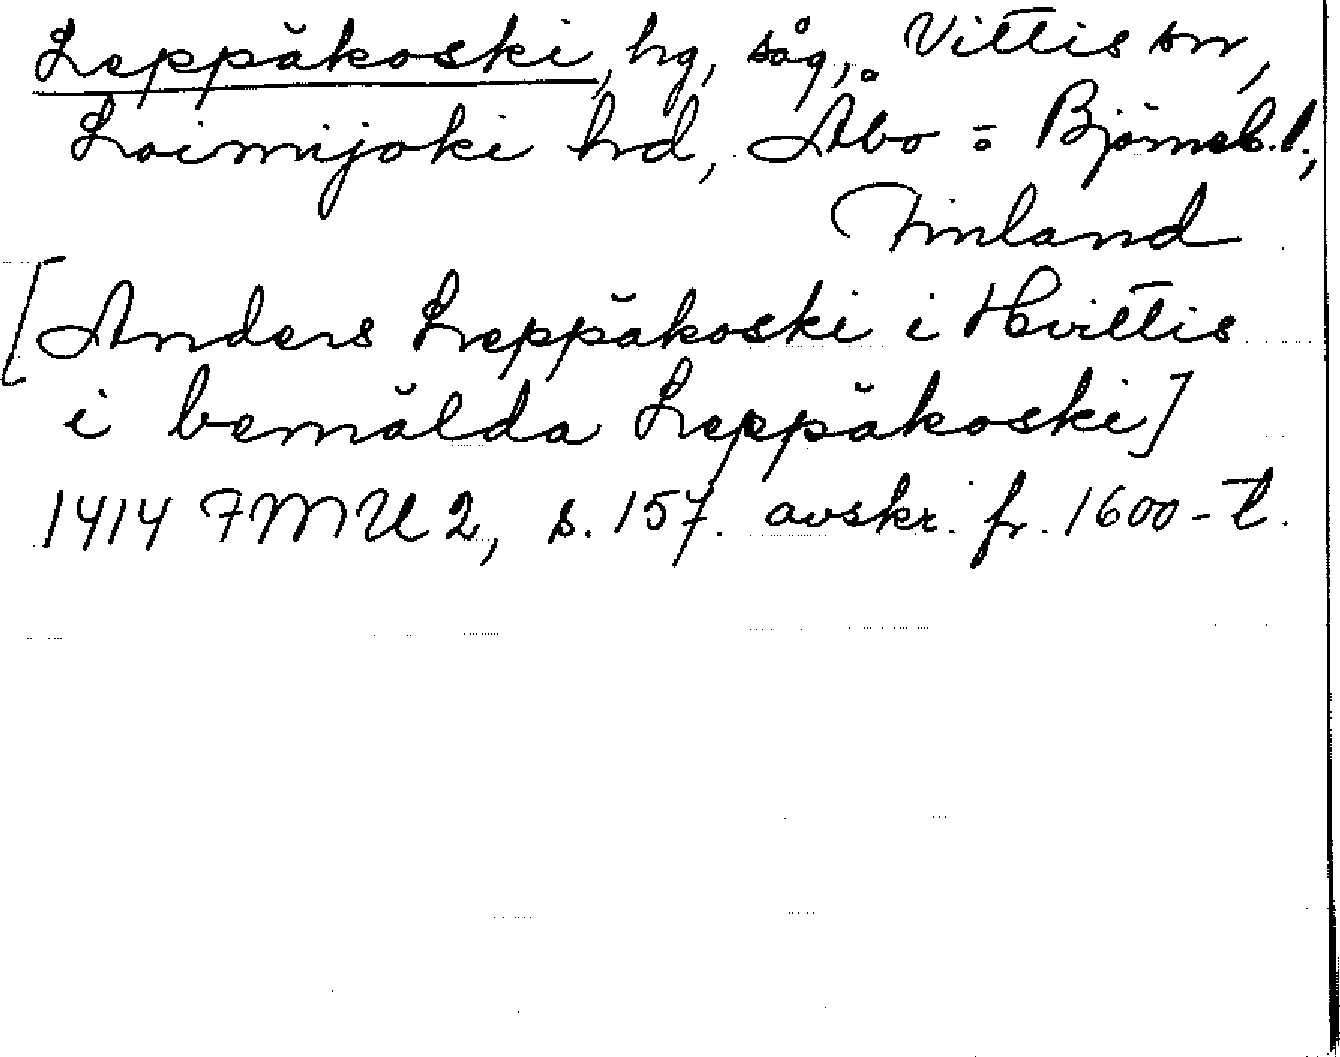 Leppäkoski, hg, såg, Vittis sn,
Loimijoki hd, Åbo o Björneb. l.,
Finland
[Anders Leppäkoski i Hvittis
i bemälda Leppäkoski]
1414 FMU 2, s. 157. avskr. fr. 1600-t.